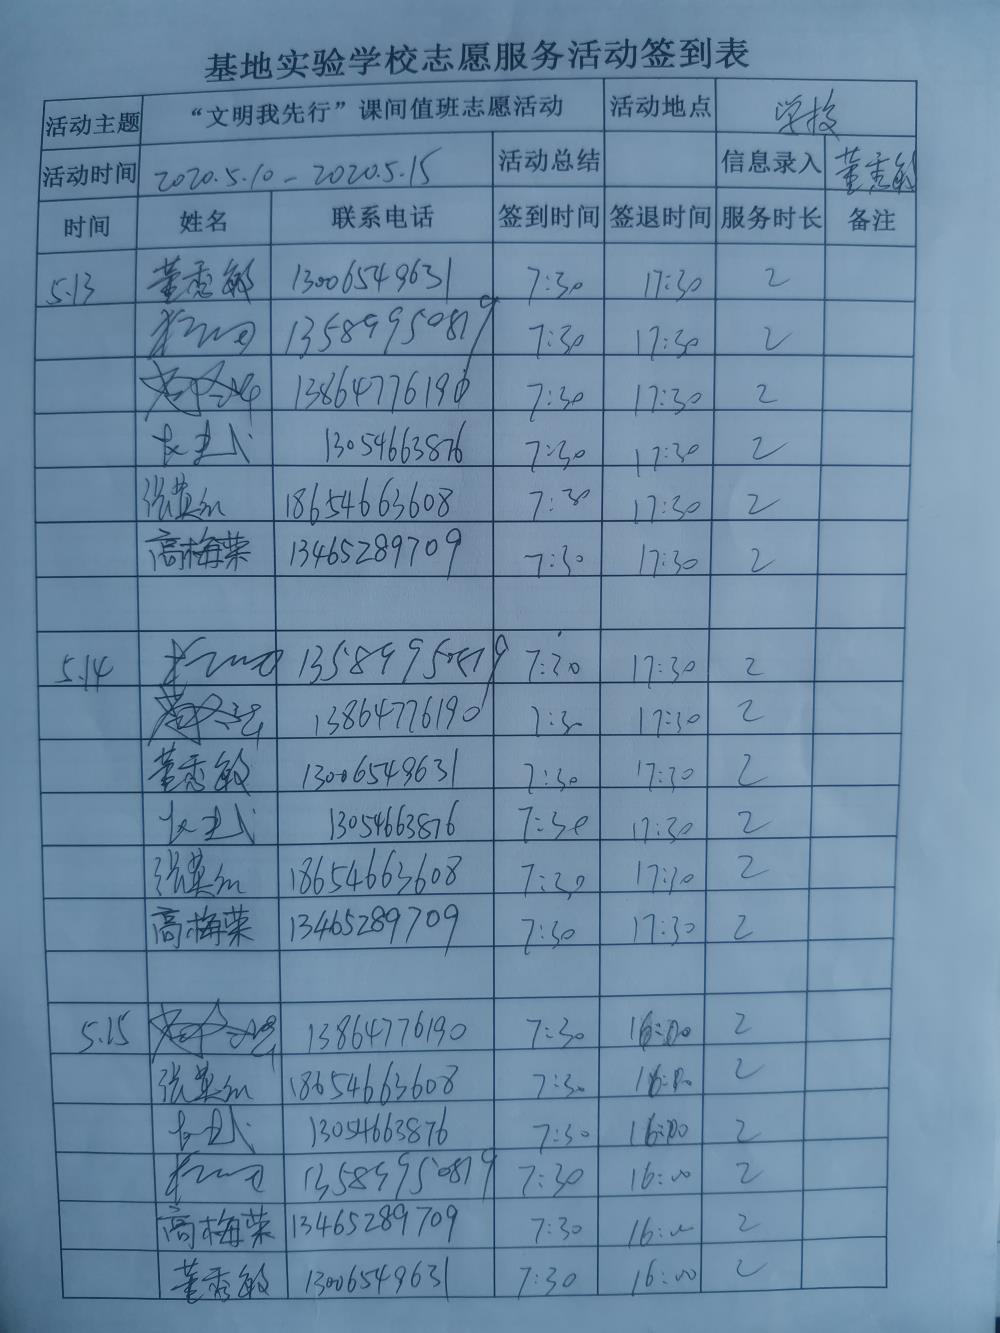 基地实验学校志愿服务活动签到表
活动主题 “文明我先行”课间值班志愿活动 活动地点 学校
活动时间 2020.5.10-2020.5.15 活动总结 信息录入 董秀敏
时间 姓名 联系电话 签到时间 签退时间 服务时长 备注
5.13 董秀敏 13006549631 7:30 17:30 2
13589950819 7:30 17:30 2
13864776190 7:30 17:30 2
13054663876 7:30 17:30 2
张 18654663608 7:30 17:30 2
高梅荣 13465289709 7:30 17:30 2
5.14 13589950819 7:30 17:30 2
13864776190 7:30 17:30 2
董秀敏 13006549631 7:30 17:30 2
13054663876 7:30 17:30 2
张 18654663608 7:30 17:30 2
高梅荣 13465289709 7:30 17:30 2
5.15 13864776190 7:30 16:00 2
张 18654663608 7:30 16:00 2
13054663876 7:30 16:00 2
13589950819 7:30 16:00 2
高梅荣 13465289709 7:30 16:00 2
董秀敏 13006549631 7:30 16:00 2